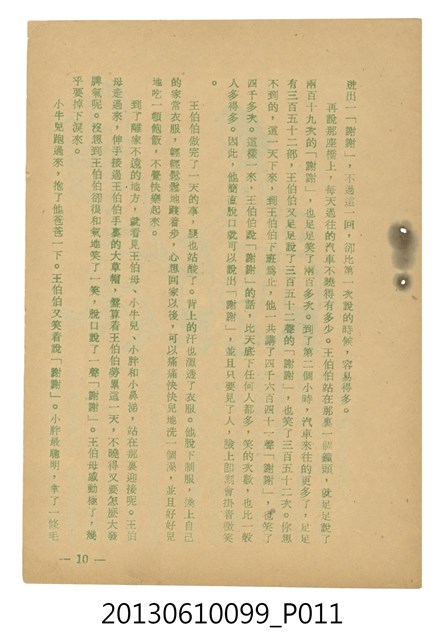 進出一「謝謝」，不過這一回，卻比第一次說的時候，容易得多。
再說那座橋上，每天過往的汽車不曉得有多少。王伯伯站在那裏一個鐘頭，就足足說了
兩百十九次的「謝謝」，也足足笑了兩百多次。到了第二個小時，汽車來往的更多了，足足
有三百五十二部，王伯伯又足足說了三百五十二聲的「謝謝」，也笑了三百五十二次。你想
不到的，這一天下來，到王伯伯下班爲止，他一共講了四千六百四十一聲「謝謝」，也笑了
四千多次。這樣一來，王伯伯說「謝謝」的話，比天底下任何人都多，笑的次數，也比一般
人多得多。因此，他簡直脫口就可以說出「謝謝」，並且只要見了人，臉上卽刻會掛着微笑
。
王伯伯做完了一天的事，腿也站酸了。背上的汗也濕透了衣服。他脫下制服，換上自己
的家常衣服，輕輕鬆鬆地踱着步，心想回家以後，可以痛痛快快兒地洗一個澡，並且好好兒
地吃一頓飽飯，不覺快樂起來。
到了離家不遠的地方，就看見王伯母、小牛兒、小胖和小鼻涕，站在那裏迎接呢。王伯
母走過來，伸手接過王伯伯手裏的大草帽，盤算着王伯伯勞累這一天，不曉得又要怎麼大發
脾氣呢。沒想到王伯伯卻很和氣地笑了一笑，脫口說了一聲「謝謝」。王伯母感動極了，幾
乎要掉下淚來。
小牛兒跑過來，抱了他爸爸一下。王伯伯又笑着說「謝謝」。小胖最聰明，拿了一條毛
— 10 —
20130610099_P011